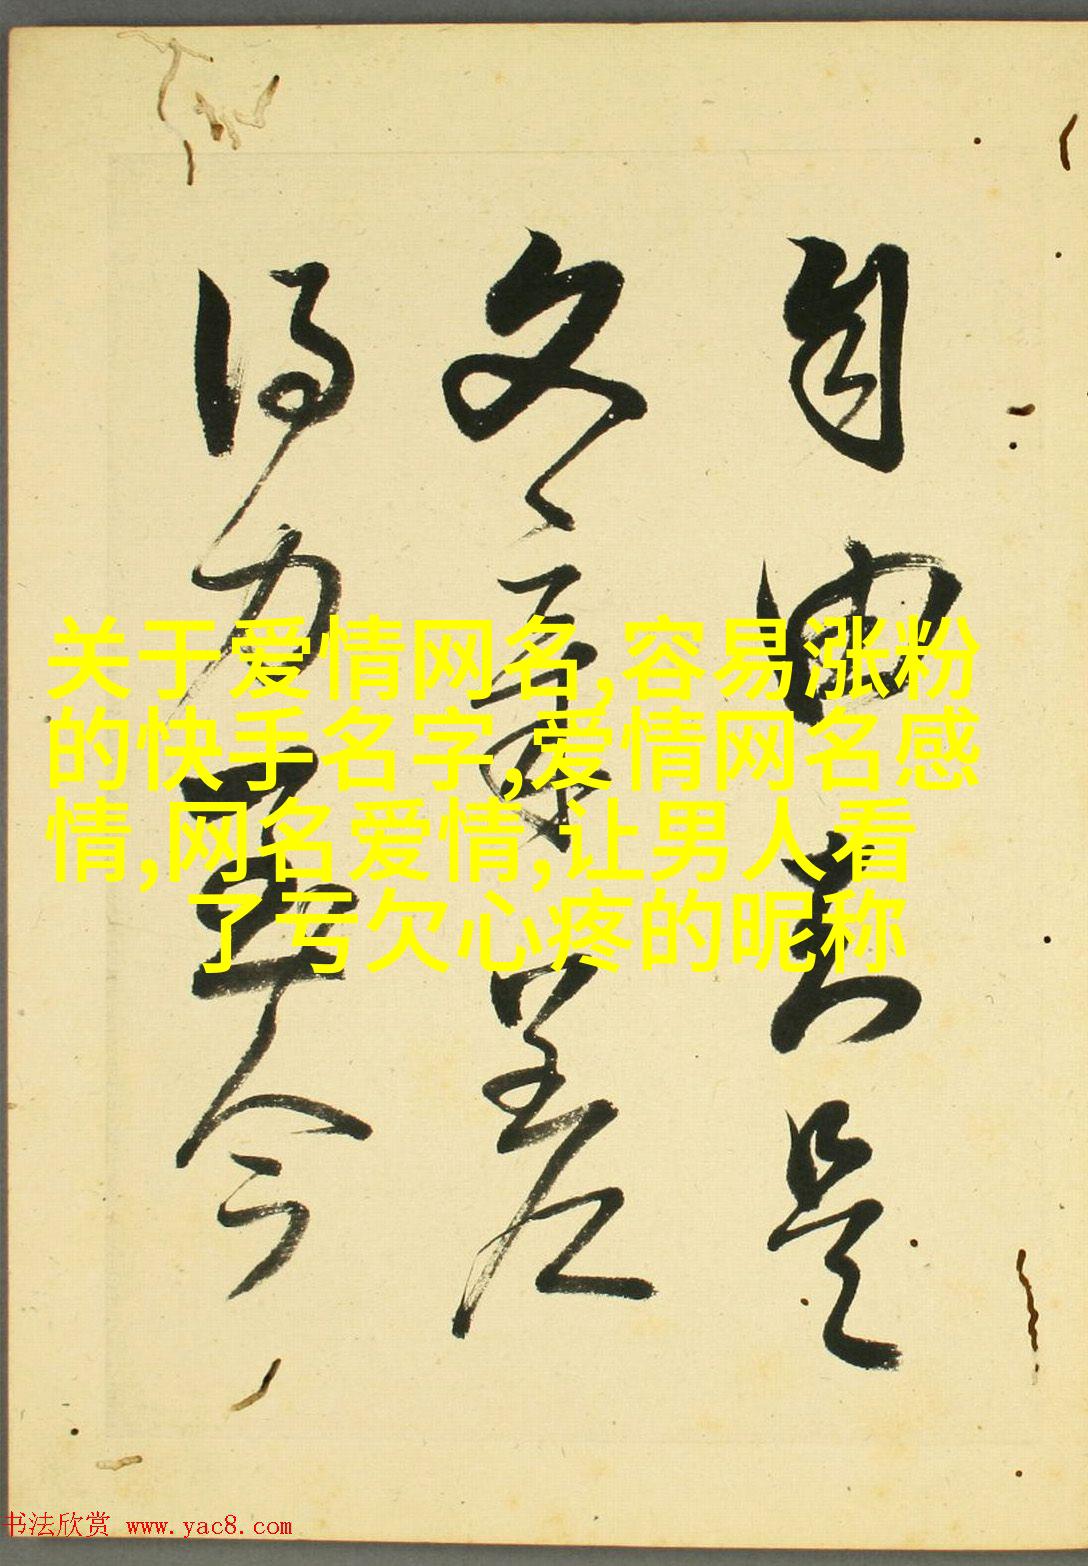 自由真是
文章差
得力無今
关于爱情网名,容易涨粉
的快手名字,爱情网名感
情,网名爱情,让男人看
了亏欠心疼的昵称
书法欣赏 www.yac8.com